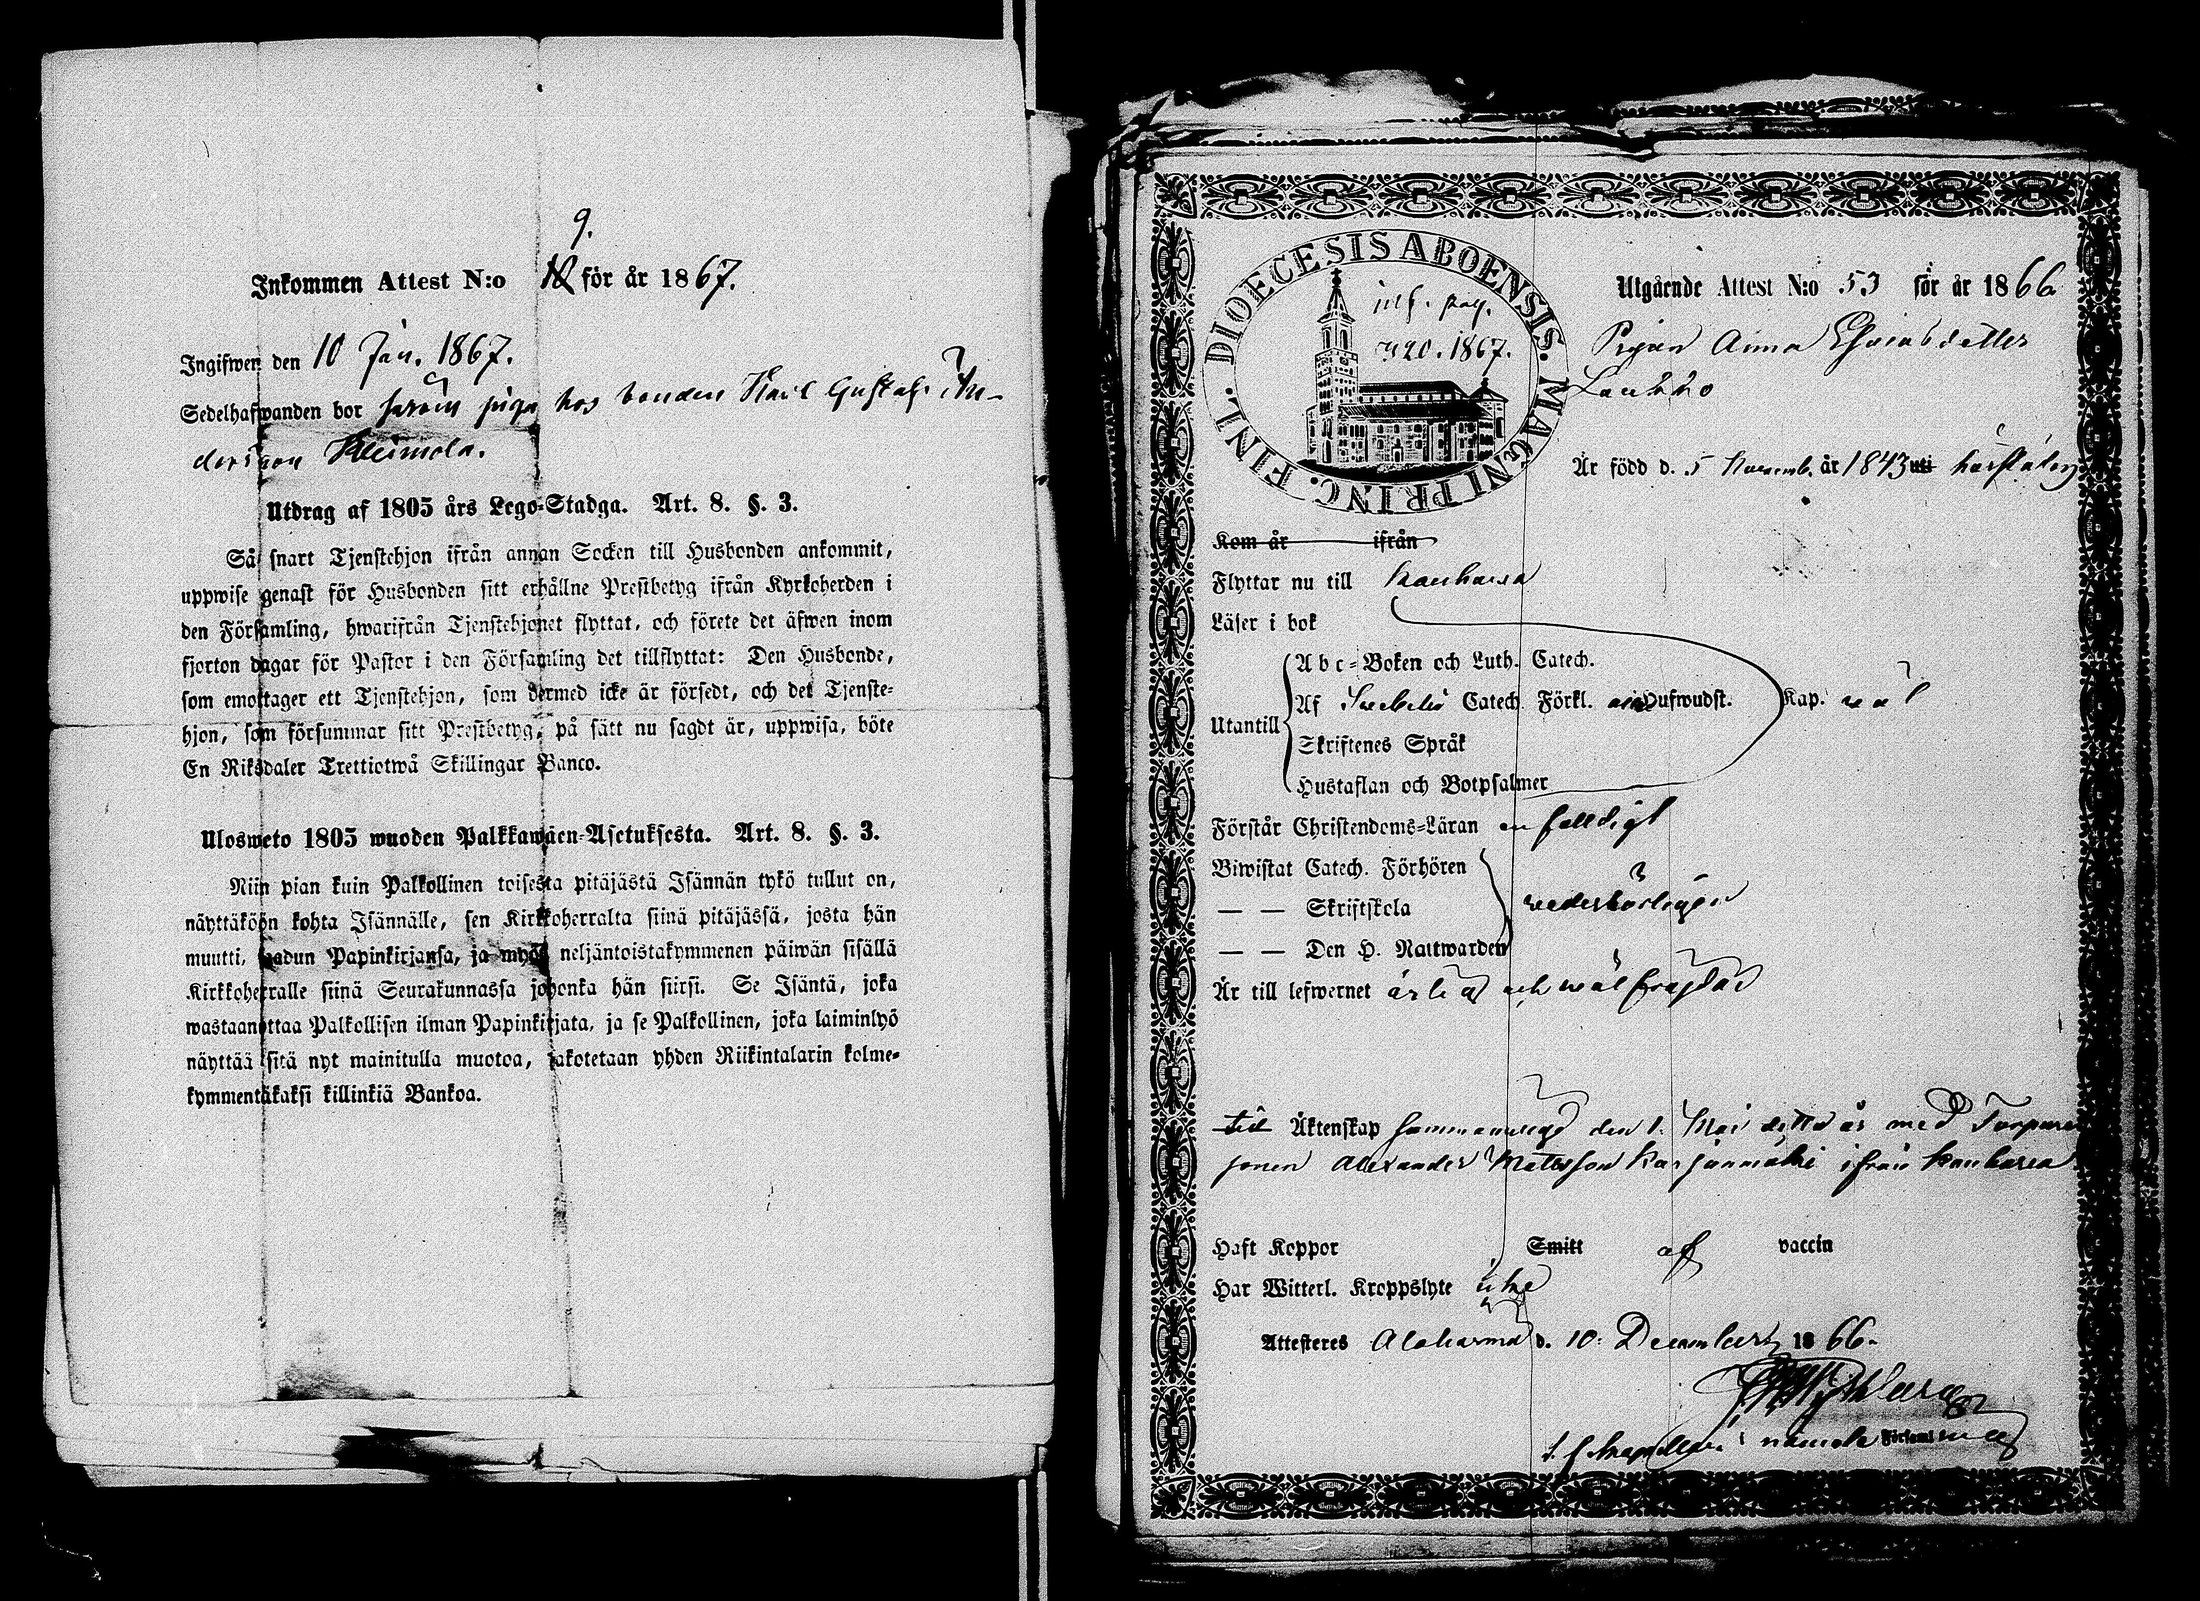 9.
Inkommen Attest N:o 12 för år 1867.
Ingifwen den 10 Jan. 1867.
Sedelhafwanden bor såsom piga hos bonden Karl Gustaf An-
dersson Heimola.
Utdrag af 1805 års Lego-Stadga. Art. 8. §. 3.
Så snart Tjenstehjon ifrån annan Socken till Husbonden ankommit,
uppwise genast för Husbonden sitt erhållne Prestbetyg ifrån Kyrkoherden i
den Församling, hwarifrån Tjenstehjonet flyttat, och förete det äfwen inom
fjorton dagar för Pastor i den Församling det tillflyttat: Den Husbonde,
som emottager ett Tjenstehjon, som dermed icke är försedt, och det Tjenste-
hjon, som försummar sitt Prestbetyg, på sätt nu sagdt är, uppwisa, böte
En Riksdaler Trettiotwå Skillingar Banco.
Ulosweto 1805 wuoden Palkkawäen-Asetuksesta. Art. 8. §. 3.
Niin pian kuin Palkollinen toisesta pitäjästä Isännän tykö tullut on,
näyttäköön kohta Isännälle, sen Kirkkoherralta siinä pitäjässä, josta hän
muutti, saadun Papinkirjansa, ja myös neljäntoistakymmenen päiwän sisällä
Kirkkoherralle siinä Seurakunnassa johonka hän siirsi. Se Isäntä, joka
wastaanottaa Palkollisen ilman Papinkirjata, ja se Palkollinen, joka laiminlyö
näyttää sitä nyt mainitulla muotoa, sakotetaan yhden Riikintalarin kolme-
kymmentäkaksi killinkiä Bankoa.
DIOECESIS ABOENSIS. MAGNI PRINC. FINL.
420. 1867.
Utgående Attest N:o 53 för år 1866
Pigan Anna Esaiasdotter
Laukko
Är född d. 5 Novemb. år 1843 uti härstädes
Kom år ifrån
Flyttar nu till Kauhava
Läser i bok
Abc-Boken och Luth. Catech.
Utantill Af Svebelii Catech. Förkl. Hufwudst. Kap. väl
Skriftenes Språk
Hustaflan och Botpsalmer
Förstår Christendoms-Läran enfaldigt
Biwistat Catech. Förhören
— — Skriftskola vederbörligen
— — Den H. Nattwarden
Är till lefwernet ärlig och wälfräjdad
till Äktenskap sammanvigd den 1. Maj detta år med Torpare
sonen Alexander Matsson Karjanmäki ifrån Kauhava
Haft Koppor Smitt af vaccin
Har Witterl. Kroppslyte icke
Attesteres Alahärmä d. 10. December 1866.
t. f. kapellan i nämde Församling